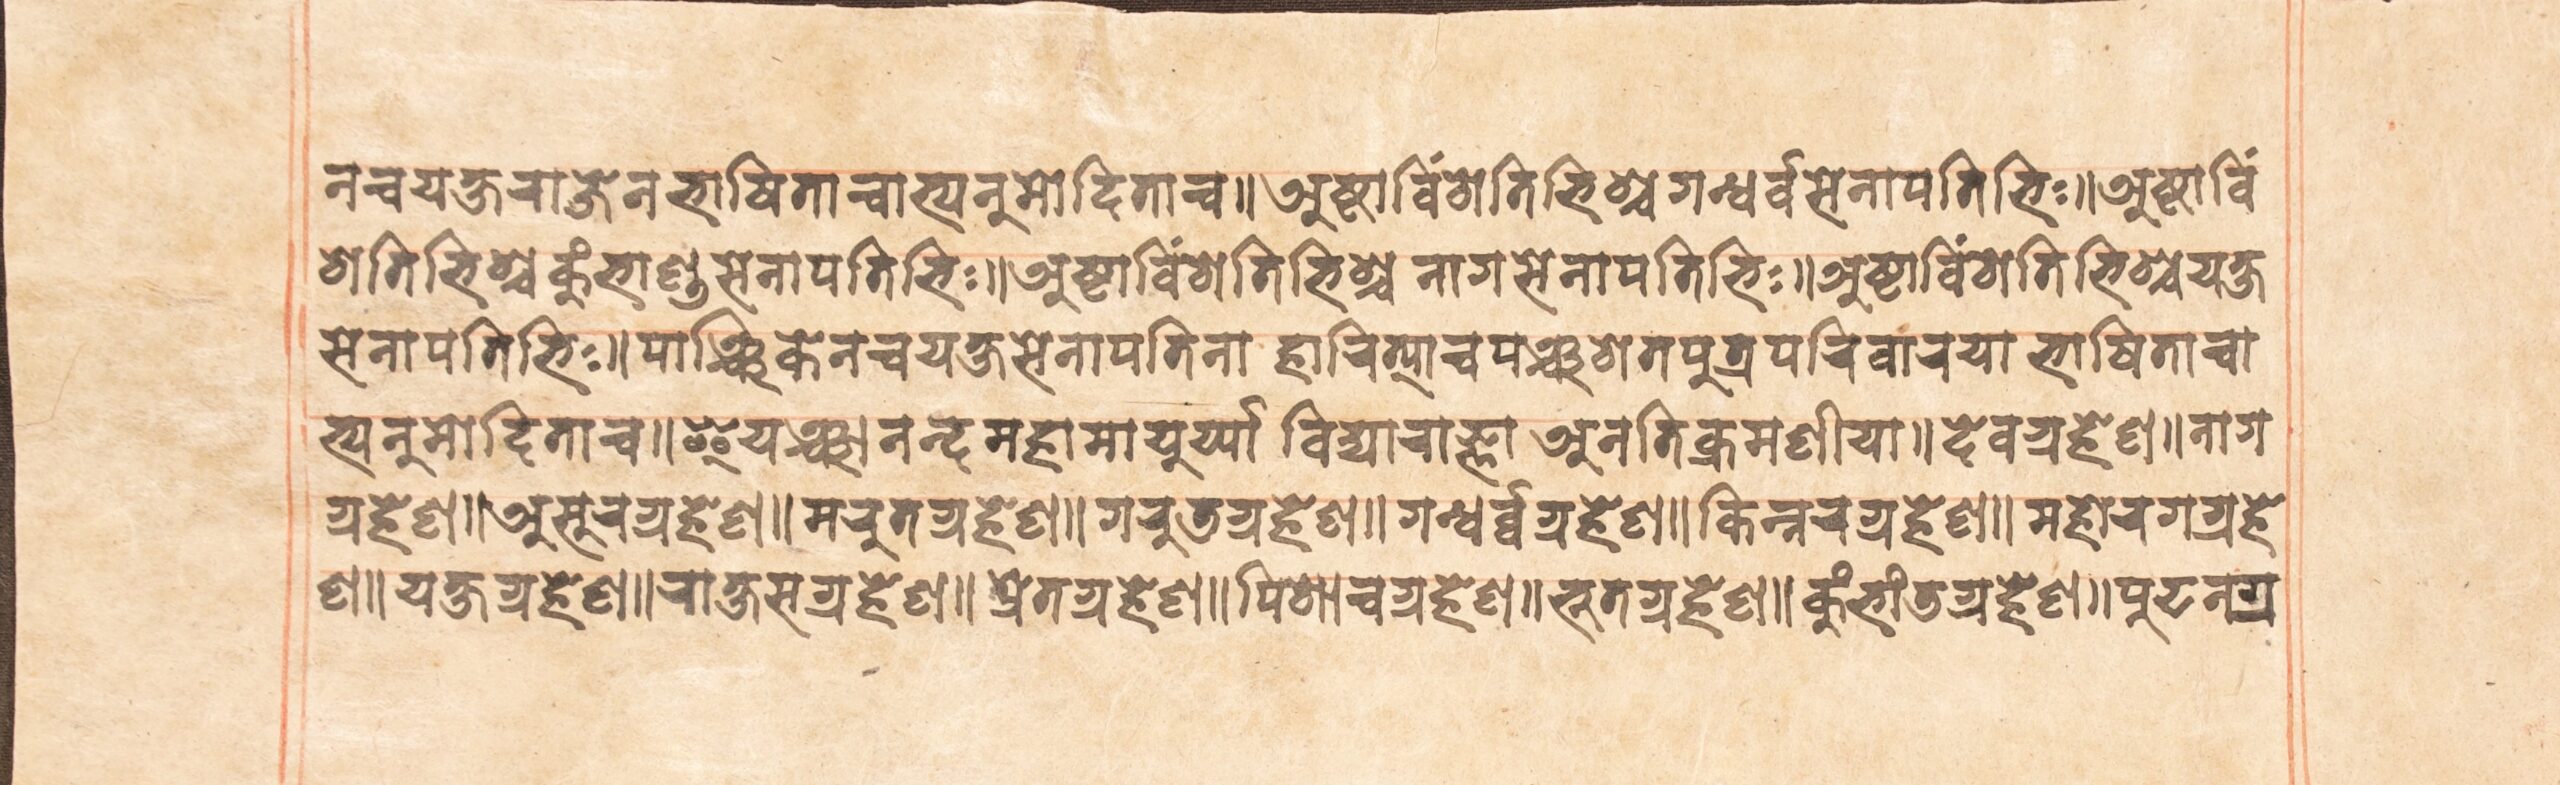 नचयक्षराजेनभाषिताचाभ्यनुमोदिताच॥अष्टाविंशतिभिश्चगन्धर्वसेनापतिभिः॥अष्टाविं
शतिभिश्चकुंभाण्डसेनापतिभिः॥अष्टाविंशतिभिश्च नागसेनापतिभिः॥अष्टाविंशतिभिश्चयक्ष
सेनापतिभिः॥पाञ्चिकेनचयक्षसेनापतिना हारित्याचपञ्चशतपुत्रपरिवारया भाषिताचा
भ्यनुमोदिताच॥इयञ्चानन्दमहामायुर्य्या विद्याराज्ञा अनतिक्रमणीया॥देवग्रहेण॥नाग
ग्रहेण॥असुरग्रहेण॥मरुतग्रहेण॥गरुतग्रहेण॥गन्धर्व्वग्रहेण॥किन्नरग्रहेण॥महोरगग्रहे
ण॥यक्षग्रहेण॥राक्षसग्रहेण॥प्रेतग्रहेण॥पिशाचग्रहेण॥भुतग्रहेण॥कुंभांतग्रहेण॥पुटनग्र